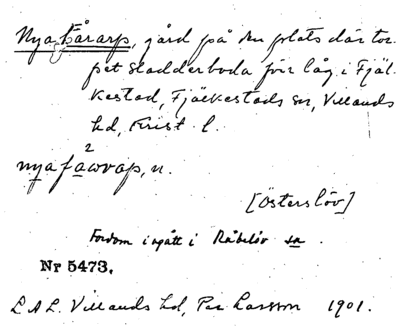 Nya Fårarp, gård på den plats där tor-
pet Sladderboda förr låg i Fjäl-
kestad, Fjälkestads sn, Villands
hd, Krist. l.
2
nya fawrap, n.
[Österslöv]
Fordom ingått i Råbelöv sn.
Nr 5473.
L A L. Villands hd, Per Larsson 1901.